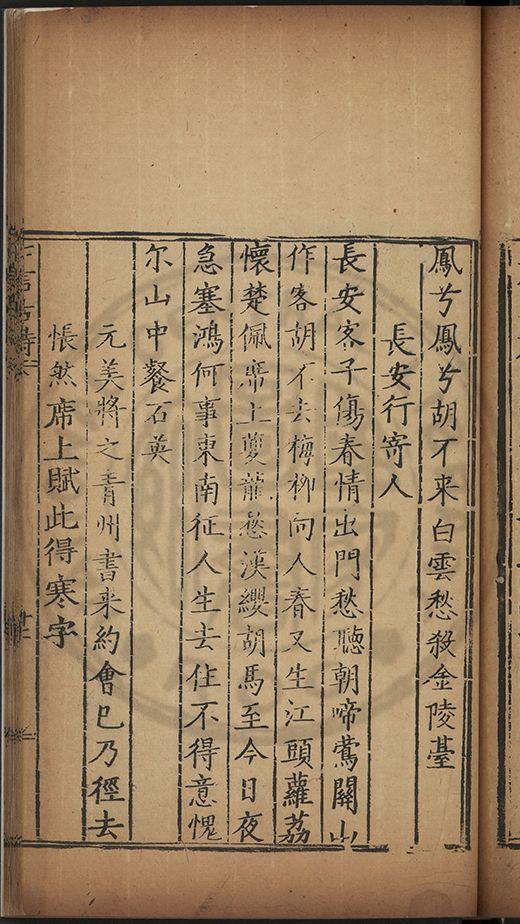 鳳兮鳳兮胡不来白雲愁殺金陵臺
長安行寄人
長安客子傷春情出門愁聽朝啼鶯關山
作客胡不去梅柳向人春又生江頭蘿荔
懷楚佩席上夔龍慙漢纓胡馬至今日夜
急塞鴻何事東南征人生去住不得意愧
尔山中餐石英
元美將之青州書来約會已乃徑去
悵然席上賦此得寒字
七言古詩
十二